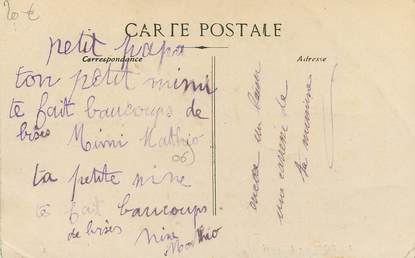 20 €
CARTE POSTALE
Correspondance
Adresse
petit papa
ton petit mimi
te fait baucoups de
bises Mimi Mathio
06)
ta petite nine
te fait baucoups
de bises Nine
Mathio
encore un baiser
une caresse de
ta mémine